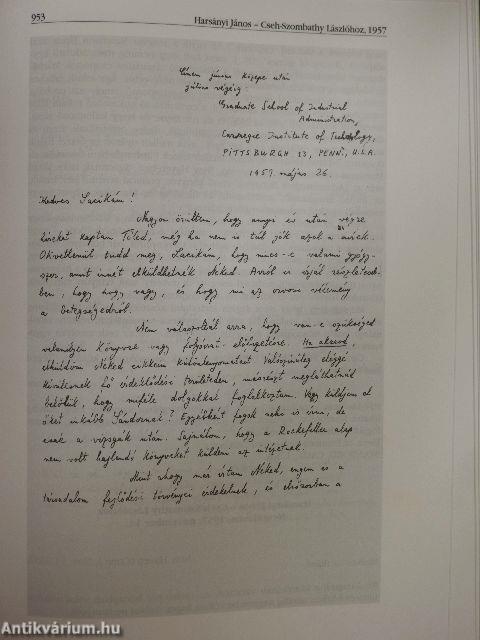 953
Harsányi János – Cseh-Szombathy Lászlóhoz, 1957
Címem június közepe után
július végéig:
Graduate School of Industrial
Administration,
Carnegie Institute of Technology,
PITTSBURGH 13, PENN., U.S.A.
1957. május 26.
Kedves Lacikám!
Nagyon örültem, hogy annyi év után végre
híreket kaptam Tőled, még ha nem is túl jók azok a hírek.
Okvetlenül tudd meg, Lacikám, hogy nincs-e valami gyógy-
szer, amit innét elküldhetnék Neked. Arról is írjál részleteseb-
ben, hogy hogy vagy, és hogy mi az orvosi vélemény
a betegségedről.
Nem válaszoltál arra, hogy van-e szükséged
valamilyen könyvre vagy folyóirat-előfizetésre. Ha akarod,
elküldöm Neked cikkeim különlenyomatait. Valószínűleg eléggé
kívül esnek fő érdeklődési területeden, másrészt megláthatnád
belőlük, hogy miféle dolgokkal foglalkoztam. Vagy küldjem el
őket inkább Sándornak? Egyébként fogok neki is írni, de
csak a vizsgák után. Sajnálom, hogy a Rockefeller alap
nem volt hajlandó könyveket küldeni az intézetnek.
Mint ahogy már írtam Neked, engem is a
társadalom fejlődési törvényei érdekelnek, és elsősorban a
Antikvárium.hu